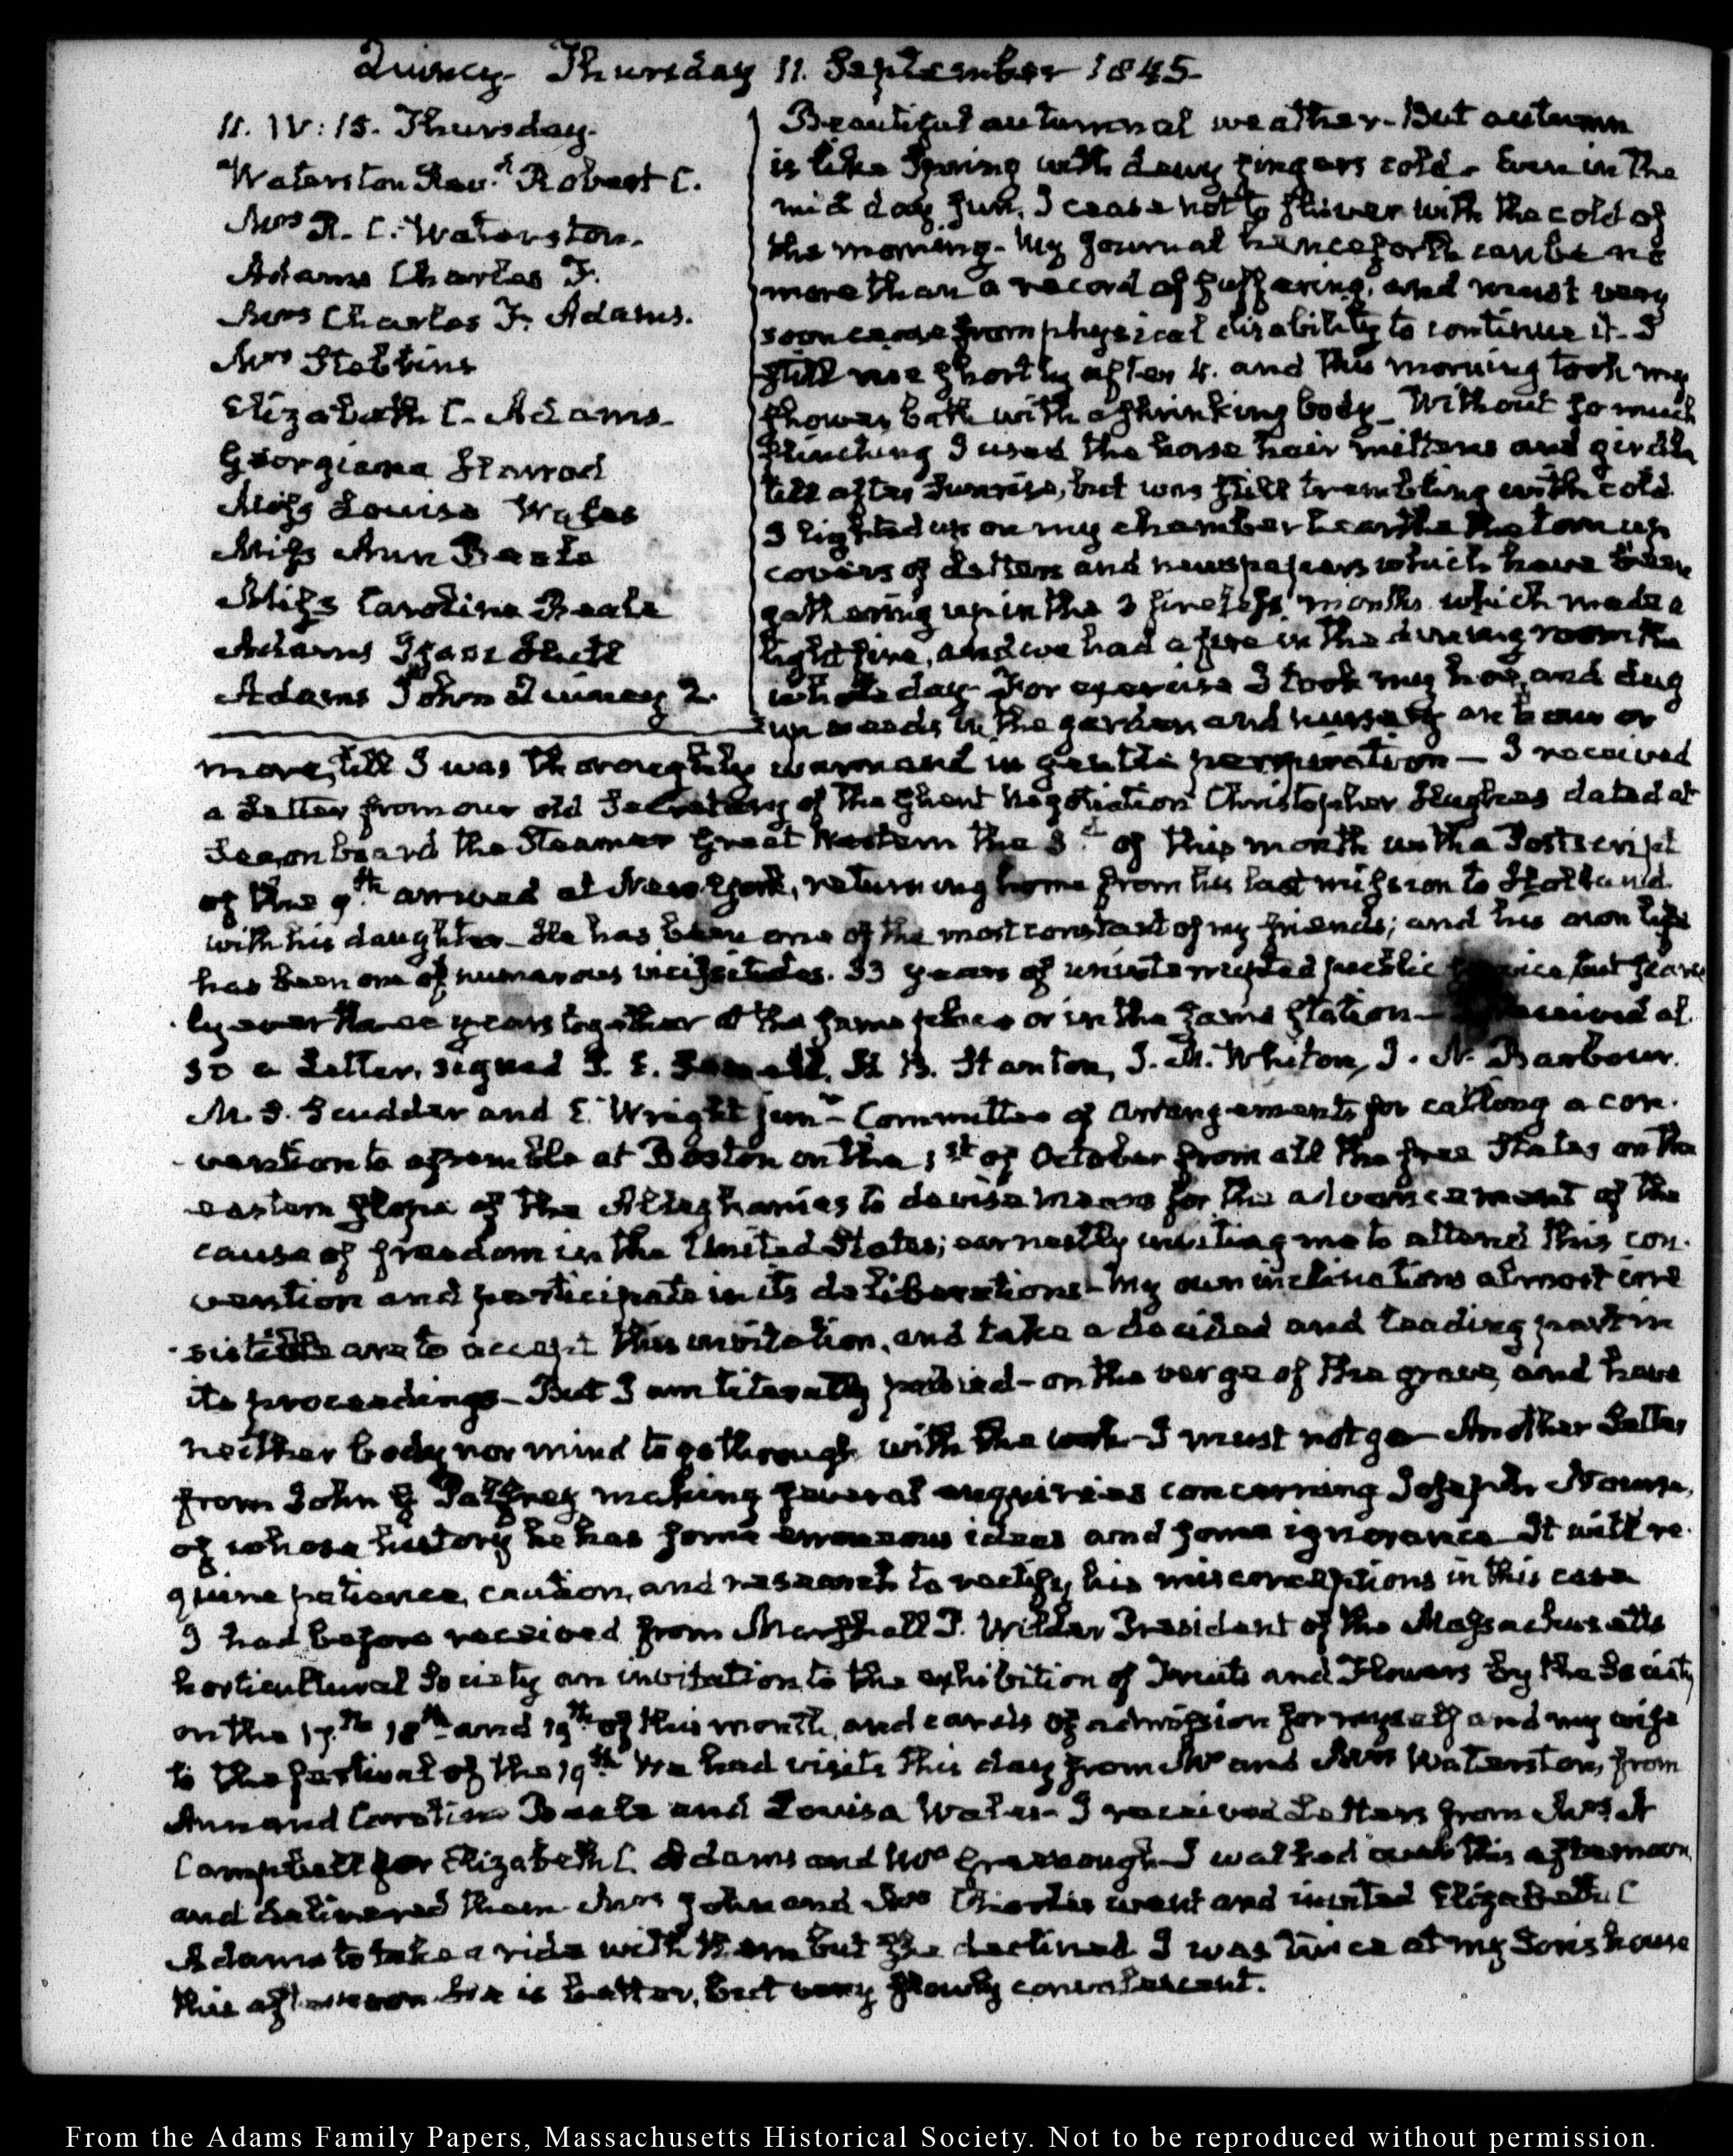 Quincy Thursday 11. September 1845.
11. IV: 15. Thursday.
Waterston Rev.d Robert C.
Mrs R. C. Waterston.
Adams Charles F.
Mrs Charles F. Adams.
Mrs Stebbins
Elizabeth C. Adams.
Georgiana
Miss Louisa Wales
Miss Ann Beale
Miss Caroline Beale
Adams Isaac Hull
Adams John Quincy 2.
Beautiful autumnal weather – But autumn
is like Spring with dewy fingers cold. Even in the
mid day sun, I cease not to shiver with the cold of
the morning – My journal henceforth can be no
more than a record of suffering, and must very
soon cease from physical disability to continue it – I
still rise shortly after 4. and this morning took my
shower bath with a shrinking body – Without so much
flinching I used the horse hair mittens and girdle
till after Sunrise, but was still trembling with cold.
I lighted up on my chamber hearth the torn up
covers of Letters and newspapers which have been
gathering up in the 3 fireless months which made a
light fire, and we had a fire in the dining room the
whole day – For exercise I took my hoe, and dug
up weeds in the garden and nursery an hour or
more, till I was thoroughly warm and in gentle perspiration – I received
a Letter from our old Secretary of the Ghent Negotiation Christopher Hughes dated at
Sea, on board the Steamer Great Western the 3.d of this month with a Postscript
of the 9th arrived at New York, returning home from his last mission to Holland
with his daughter – He has been one of the most constant of my friends; and his own life
has been one of numerous vicissitudes. 33 years of uninterrupted public service, but scarce
ly ever three years together at the same place or in the same station – I received al
so a Letter, signed S. E. Sewall, H. B. Stanton, J. M. Whiton, J. N. Barbour.
M. S. Scudder and E. Wright junr – Committee of Arrangements for calling a con.
vention to assemble at Boston on the 1st of October from all the free States on the
eastern slope of the Alleghanies to devise means for the advancement of the
cause of freedom in the United States; earnestly inviting me to attend this con.
vention and participate in its deliberations – My own inclinations almost irre
sistible are to accept this invitation, and take a decided and leading part in
its proceedings – But I am literally palsied – on the verge of the grave, and have
neither body nor mind to go through with the work – I must not go – Another Letter
from John G Palfrey making several enquiries concerning Joseph Nourse,
of whose history he has some erroneous ideas and some ignorance – It will re
quire patience, caution, and research to rectify his misconceptions in this case
I had before received from Marshall P. Wilder President of the Massachusetts
horticultural Society an invitation to the exhibition of Fruits and Flowers by the Society
on the 17.th 18th and 19th of this month, and cards of admission for myself and my wife
to the festival of the 19th We had visits this day from Mr and Mrs Waterston, from
Ann and Caroline Beale and Louisa Wales – I received Letters from Mrs A
Campbell for Elizabeth C. Adams and Mrs Greenough – I walked out this afternoon
and delivered them. Mrs John and Mrs Charles went and invited Elizabeth C
Adams to take a ride with them but she declined I was twice at my Son's house
this afternoon – he is better, but very slowly convalescent.
From the Adams Family Papers, Massachusetts Historical Society. Not to be reproduced without permission.